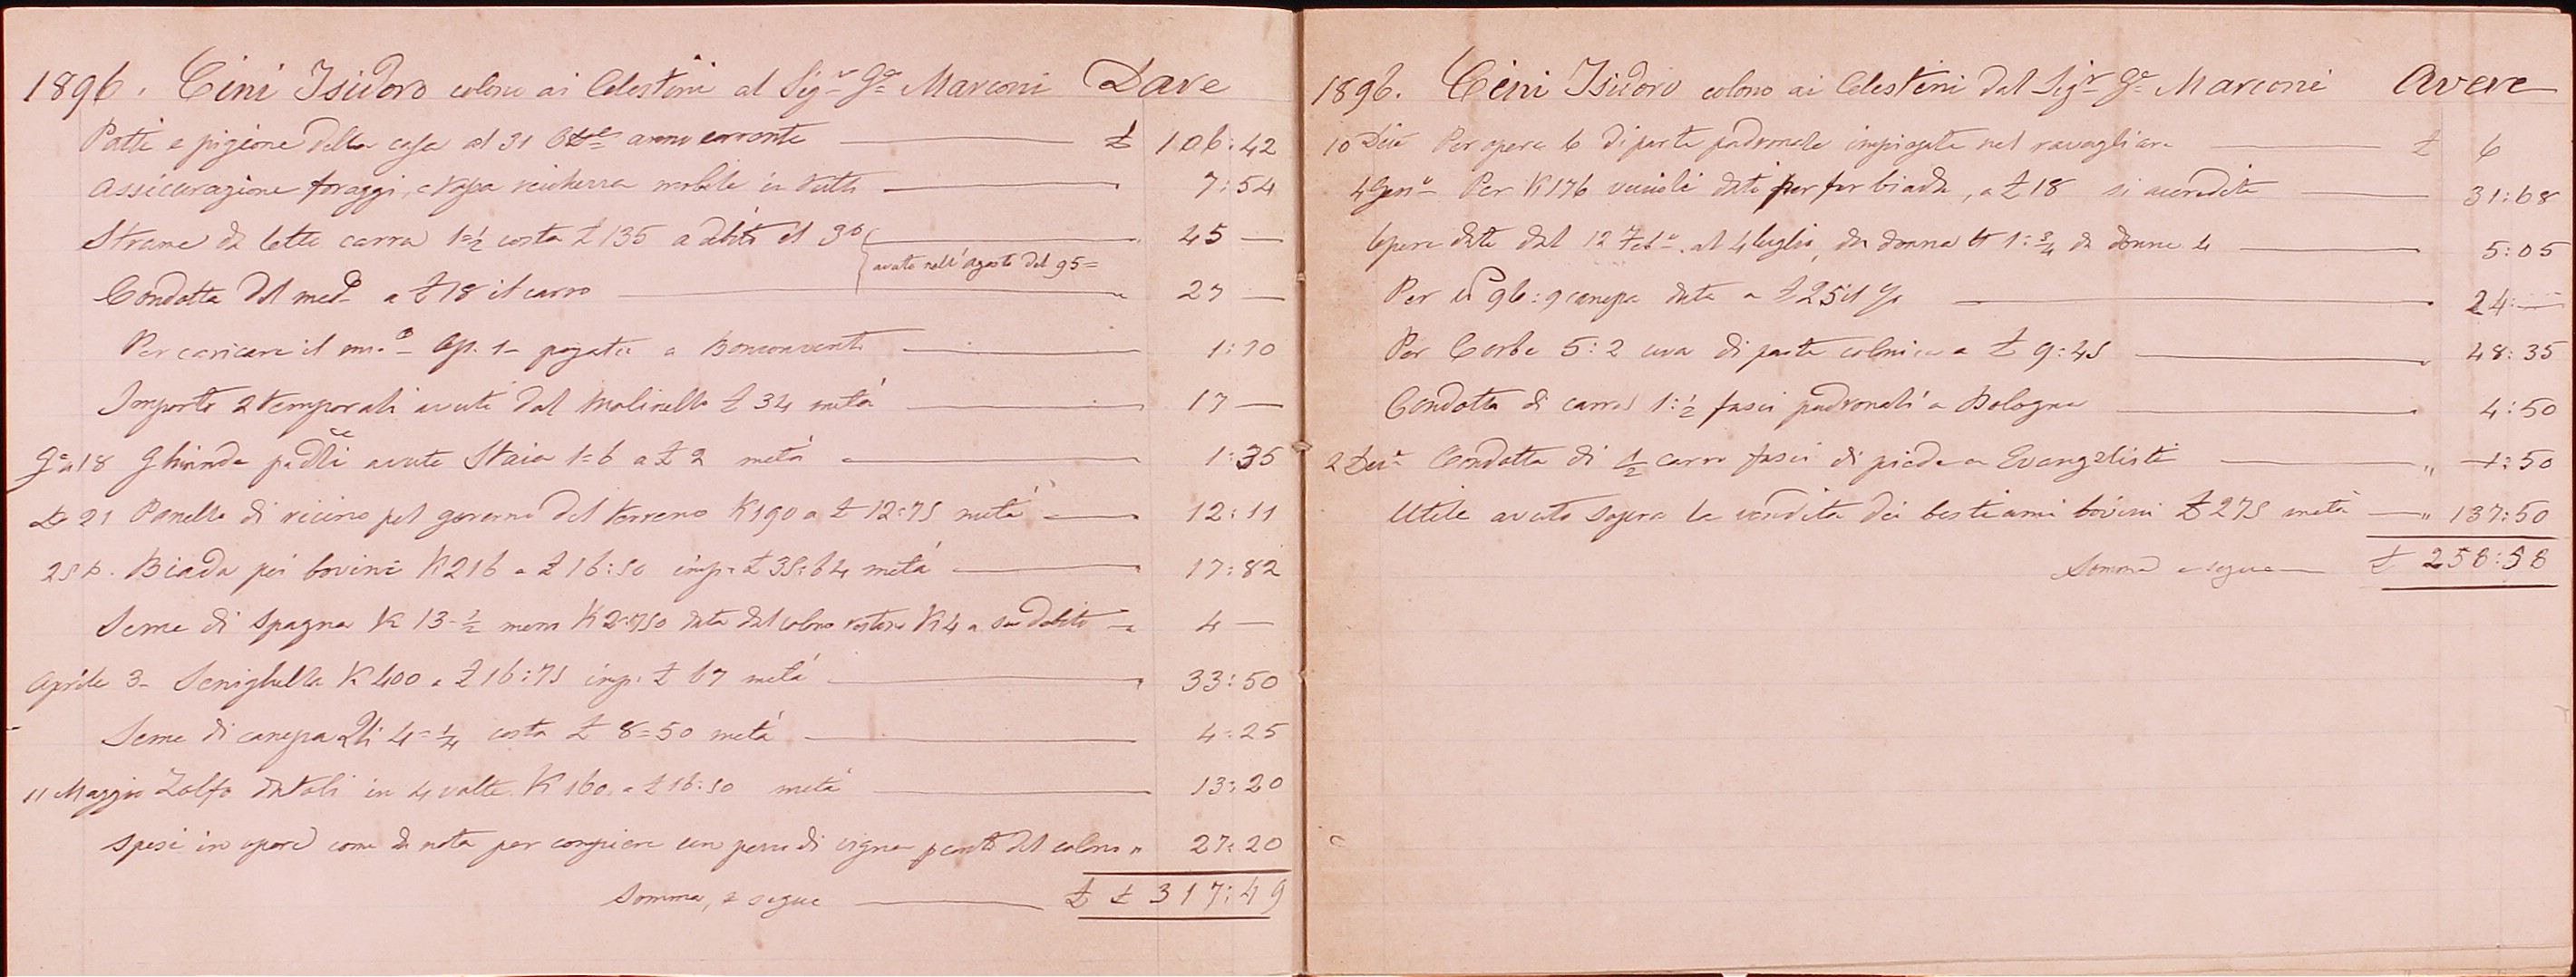 1896. Cini Isidoro colono ai Celestini al Sigr Ge Marconi Dare
Patti e pigione della casa al 31 8bre anno corrente £ 106:42
Assicurazione foraggi, canapa ricchezza mobile in tutto 7:54
Strame da letto carra 1=½ costa £ 135 a debito il 3zo 45 —
avuto nell'Agosto del 95=
Condotta del medo a £ 18 il carro 27 —
Per caricare il mo Op. 1- pagate a Bonconvento 1:30
Importo 2 temporali avuti dal Molinello £ 34 metà 17 —
Go a 18 Ghianda padli avute Staia 1=6 a £ 2 metà 1:35
Do 21 Panello di ricino pel governo del terreno K 190 a £ 12:75 metà 12:11
25 D. Biada pei bovini K 216 a £ 16:50 imp. £ 35:64 metà 17:82
Seme di spagna K 13-½ meno K 2:750 data dal colono restano K 4 a suo debito 4 —
Aprile 3- Senighella K 400 a £ 16:75 imp. £ 67 metà 33:50
Seme di canepa Qti 4=¼ costa £ 8=50 metà 4:25
11 Maggio Zolfo datoli in 4 volte K 160 a £ 16:50 metà 13:20
Spesi in opere come da nota per compiere un pezzo di vigna per conto del colono " 27:20
Somma, e segue £ £ 317:49
1896. Cini Isidoro colono ai Celestini dal Sigr Ge Marconi Avere
10 Dice Per opere 6 di parte padronale impiegate nel ravagliare £ 6
4 Geno Per K 176 dati per far biada, a £ 18 si accredita 31:68
Opere date dal 12 Febo al 4 luglio, da donna 1:¾ da donne 4 5:05
Per 96:9 canepa data a £ 25 il % 24:—
Per Corbe 5:2 uva di parte colonica a £ 9:45 48:35
Condotta di carra 1:½ fasci padronali a Bologna 4:50
2 Condotta di ½ carro fasci di piede a Evangelisti " 1:50
Utile avuto sopra la vendita dei bestiami bovini £ 275 metà " 137:50
Somma e segue £ 258:58